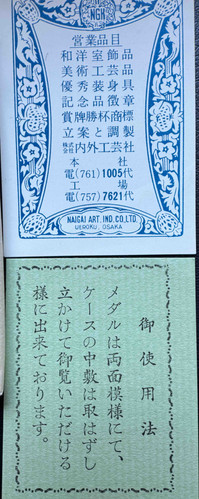 NGK
営業品目
和洋室飾品
美術工芸品
優秀装身具
記念品徽章
賞牌勝杯商標
立案と調製
株式会社内外工芸社
本社
電(761)1005代
工場
電(757)7621代
NAIGAI ART. IND. CO. LTD.
UEROKU, OSAKA
御使用法
メダルは両面模様にて、
ケースの中敷は取はずし
立かけて御覧いただける
様に出来ております。